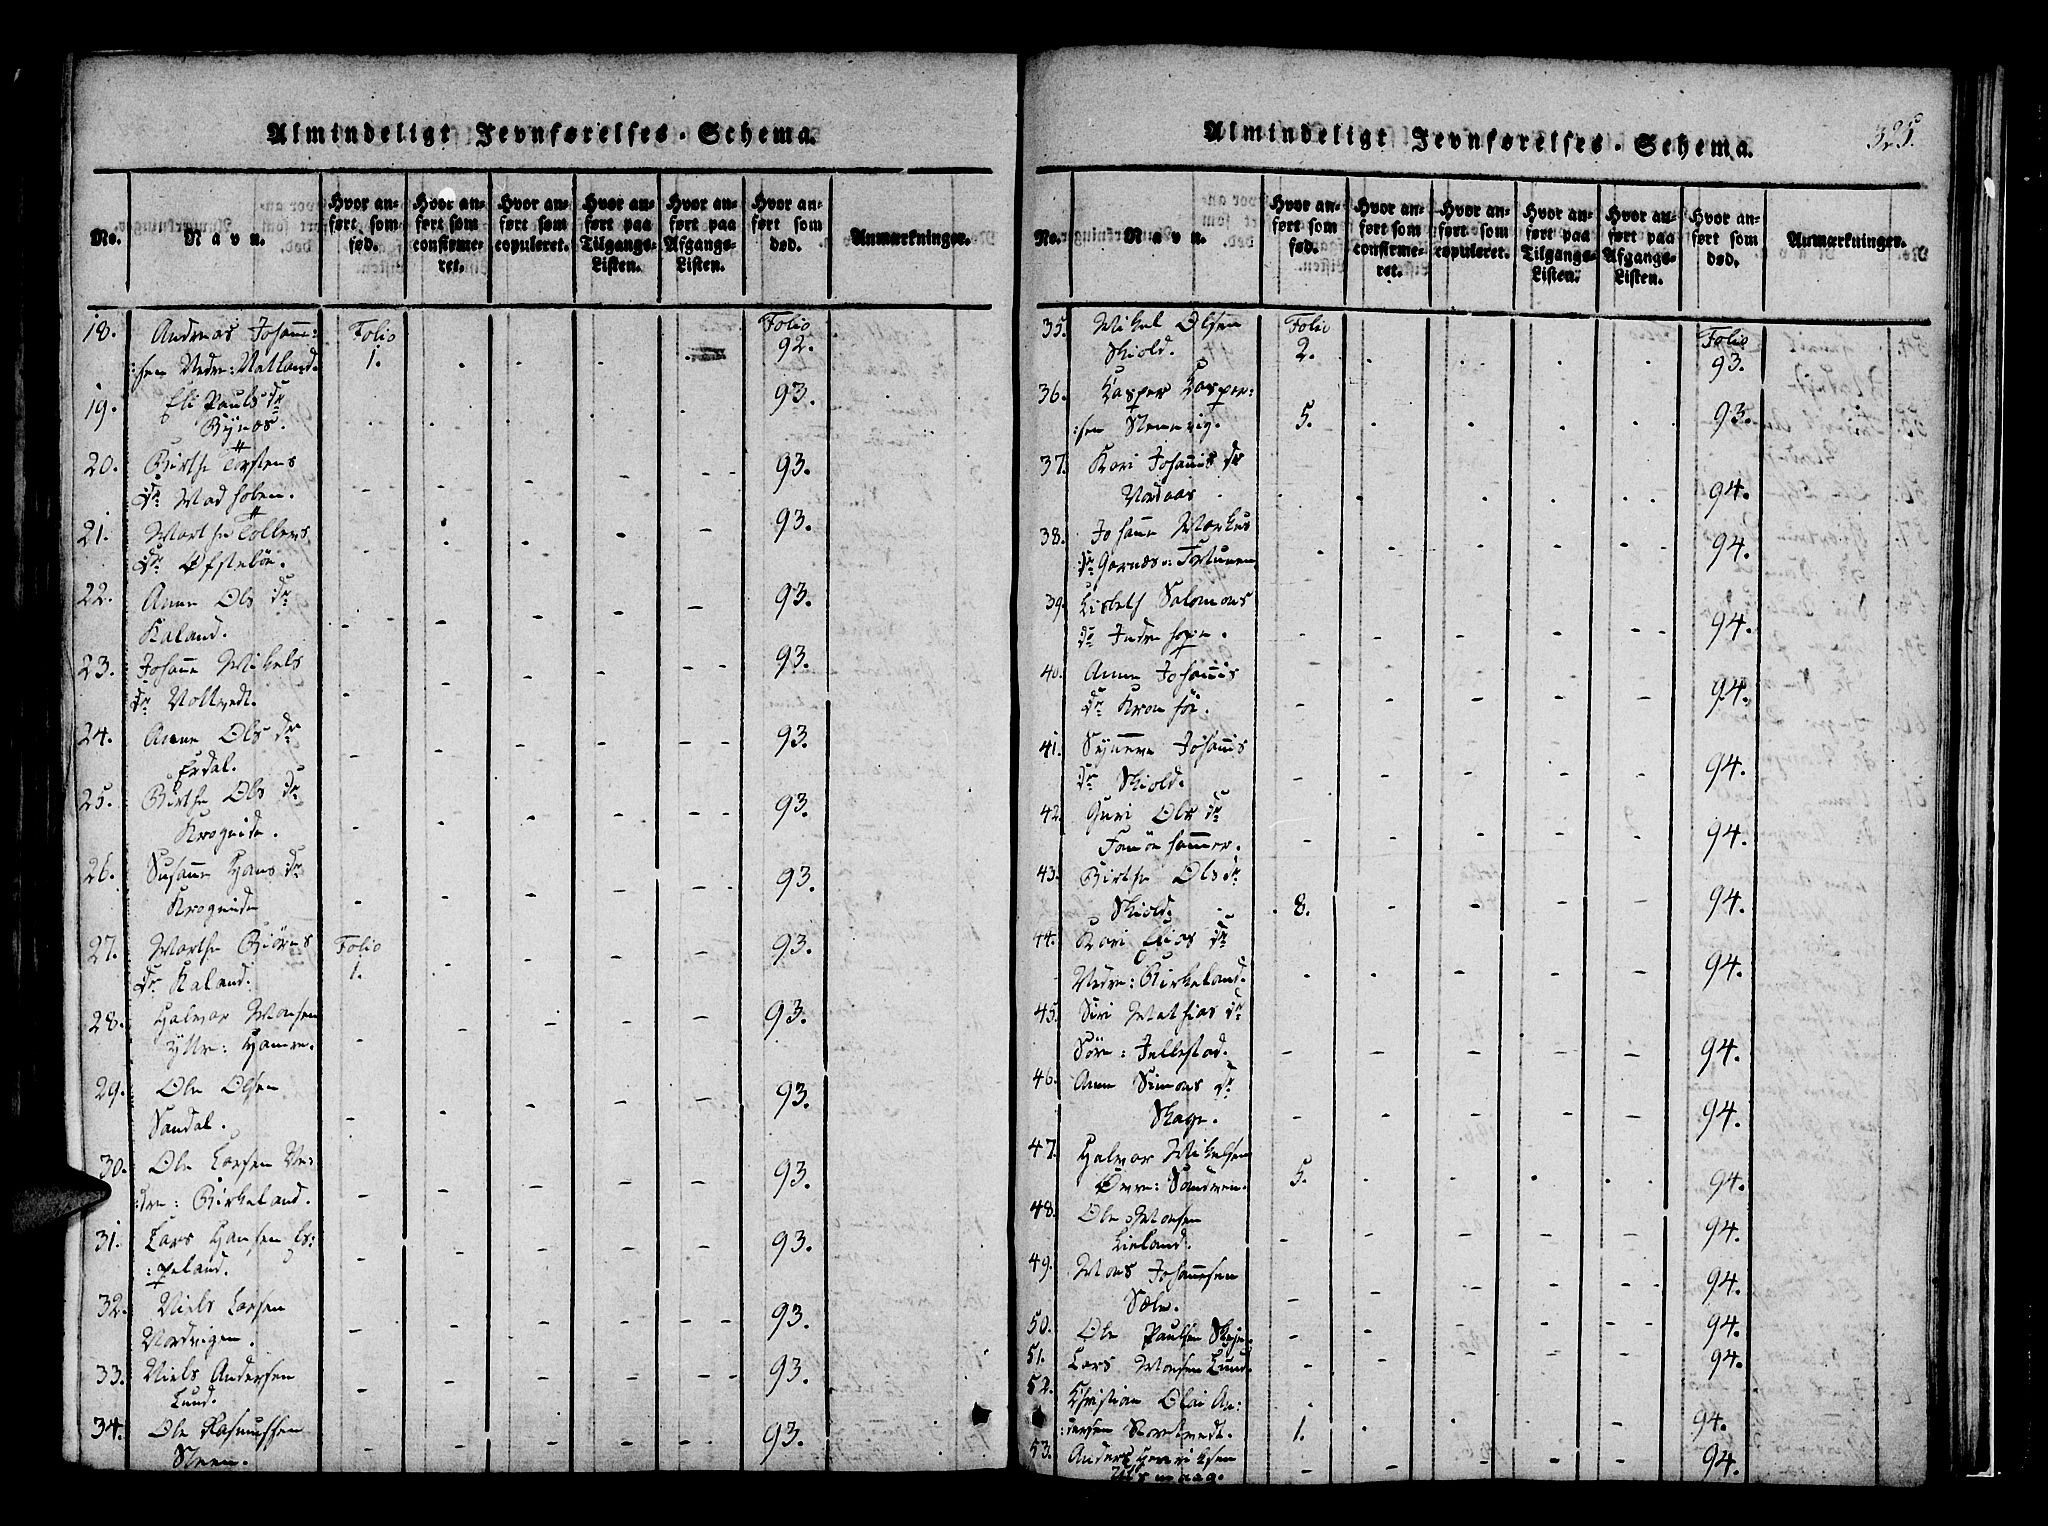 Almindeligt Jevnførelses-Schema.
No.
Navn.
Hvor anført som fød.
Hvor anført som confirmeret.
Hvor anført som copuleret.
Hvor anført paa Tilgangs-Listen.
Hvor anført paa Afgangs-Listen.
Hvor anført som død.
Anmærkninger.
18. Andreas Johanne: Folio Folio
:sen Nedre: Natland. 1. 92.
19. Eli Pauls dr 93.
Bynes.
20. Birthe Torstens 93.
dr Madhoben.
21. Marthe Tollevs 93.
dr Øfstebøe.
22. Anne Ols dr 93.
Kaland.
23. Johanne Mikels 93.
dr Nottvedt.
24. Anne Ols dr 93.
Erdal.
25. Birthe Ols dr 93.
Krogeide.
26. Susanne Hans dr 93.
Krogeide
27. Marthe Biørns Folio 93.
dr Kaland. 1.
28. Halvor Monsen 93.
Yttre: Hamre.
29. Ole Olsen 93.
Sandal.
30. Ole Larsen Ne: 93.
:dre: Birkeland.
31. Lars Hansen Es: 93.
:peland.
32. Niels Larsen 93.
Nordvigen.
33. Niels Andersen 93.
Lund.
34. Ole Rasmussen 93.
Steen.
Almindeligt Jevnførelses-Schema.
325.
No.
Navn.
Hvor anført som fød.
Hvor anført som confirmeret.
Hvor anført som copuleret.
Hvor anført paa Tilgangs-Listen.
Hvor anført paa Afgangs-Listen.
Hvor anført som død.
Anmærkninger.
35. Mikel Olsen Folio Folio
Skiold. 2. 93.
36. Kasper Kasper:
:sen Stenevig. 5. 93.
37. Kari Johannis dr
Nordaas 94.
38. Johanne Markus
dr Garnes: Fortunen 94.
39. Lisbeth Salomons
dr Indre hope. 94.
40. Anne Johannis
dr Kronhöi. 94.
41. Synneve Johannis
dr Skiold. 94.
42. Guri Ols dr
Fanöe hammer. 94.
43. Birthe Ols dr
Skiold. 8. 94.
44. Kari Elias dr
Nedre: Birkeland. 94.
45. Siri Mathias dr
Søre: Jellestad. 94.
46. Anne Simons dr
Skage. 94.
47. Halvor Mikelsen
Øvre: Sandven. 5. 94.
48. Ole Monsen
Lieland. 94.
49. Mons Johannesen
Sæle. 94.
50. Ole Paulsen Skeje. 94.
51. Lars Monsen Lund. 94.
52. Christian Olai An:
:dersen Storetvedt. 1. 94.
53. Anders Henriksen 94.